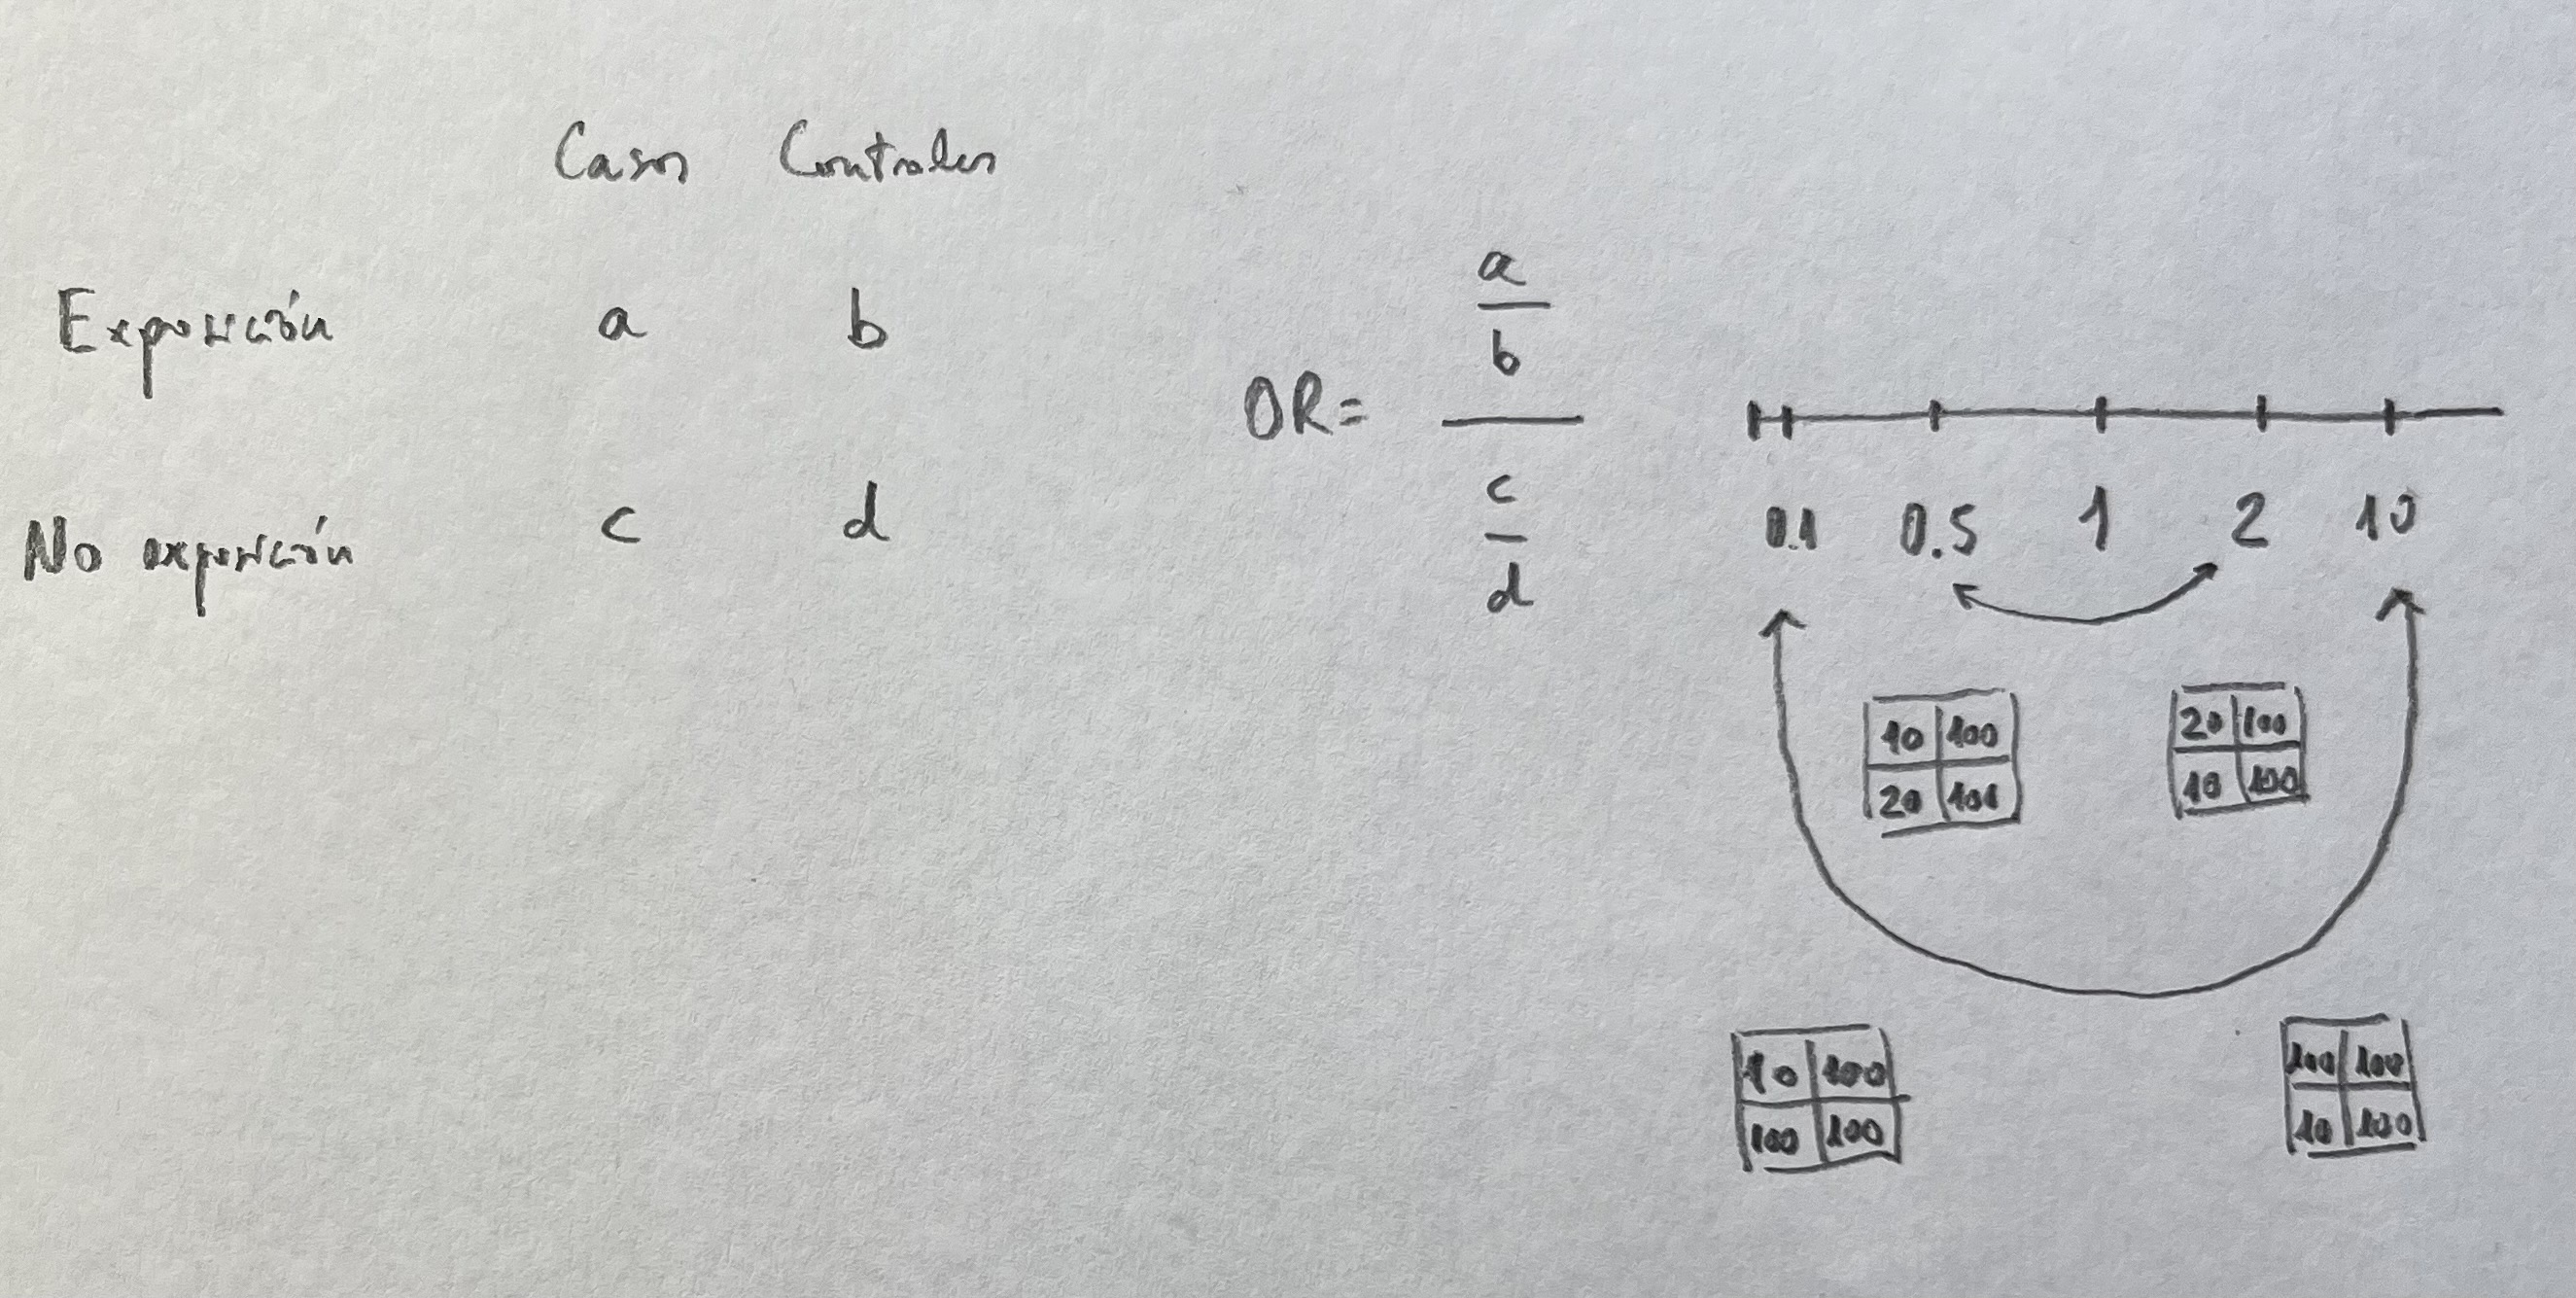 Casos Controles
Exposición a b
No exposición c d
OR=
a
b
c
d
0.1 0.5 1 2 10
10 100
20 100
20 100
10 100
10 100
100 100
100 100
10 100